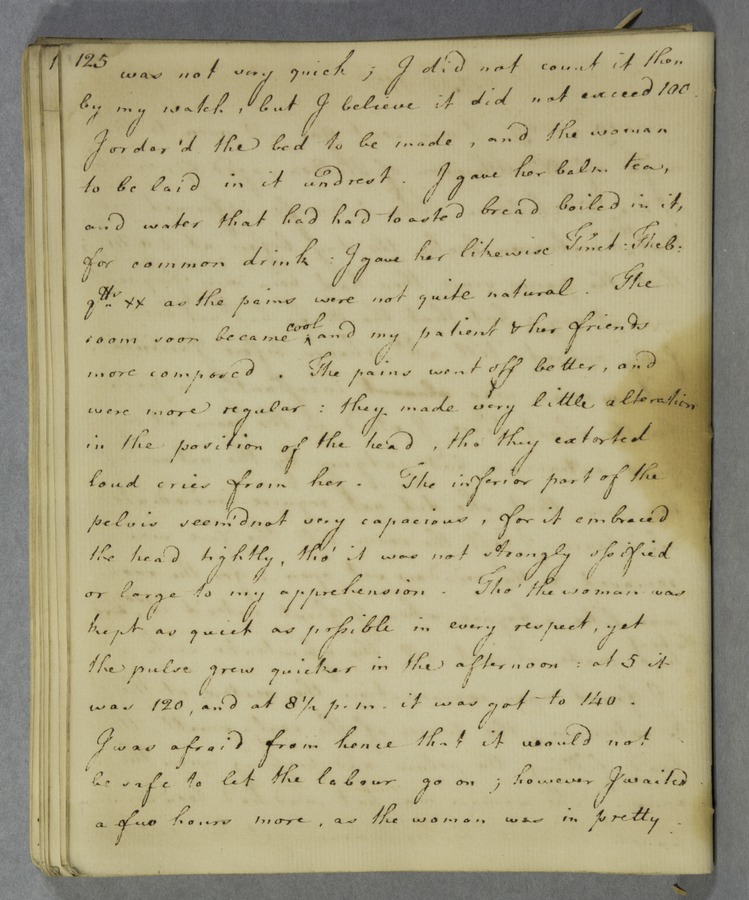 125
was not very quick ; I did not count it then
by my watch, but I believe it did not exceed 100.
I order'd the bed to be made, and the woman
to be laid in it undrest. I gave her balm tea,
and water that had had toasted bread boiled in it,
for common drink : I gave her likewise Tinct : Theb :
gtts xx as the pains were not quite natural. The
room soon became cool and my patient & her friends
more composed. The pains went off better, and
were more regular : they made very little alteration
in the position of the head, tho they extorted
loud cries from her. The inferior part of the
pelvis seem'd not very capacious, for it embraced
the head tightly, tho' it was not strongly ossified
or large to my apprehension. Tho' the woman was
kept as quiet as possible in every respect, yet
the pulse grew quicker in the afternoon : at 5 it
was 120, and at 8½ p.m. it was got to 140.
I was afraid from hence that it would not
be safe to let the labour go on ; however I waited
a few hours more, as the woman was in pretty